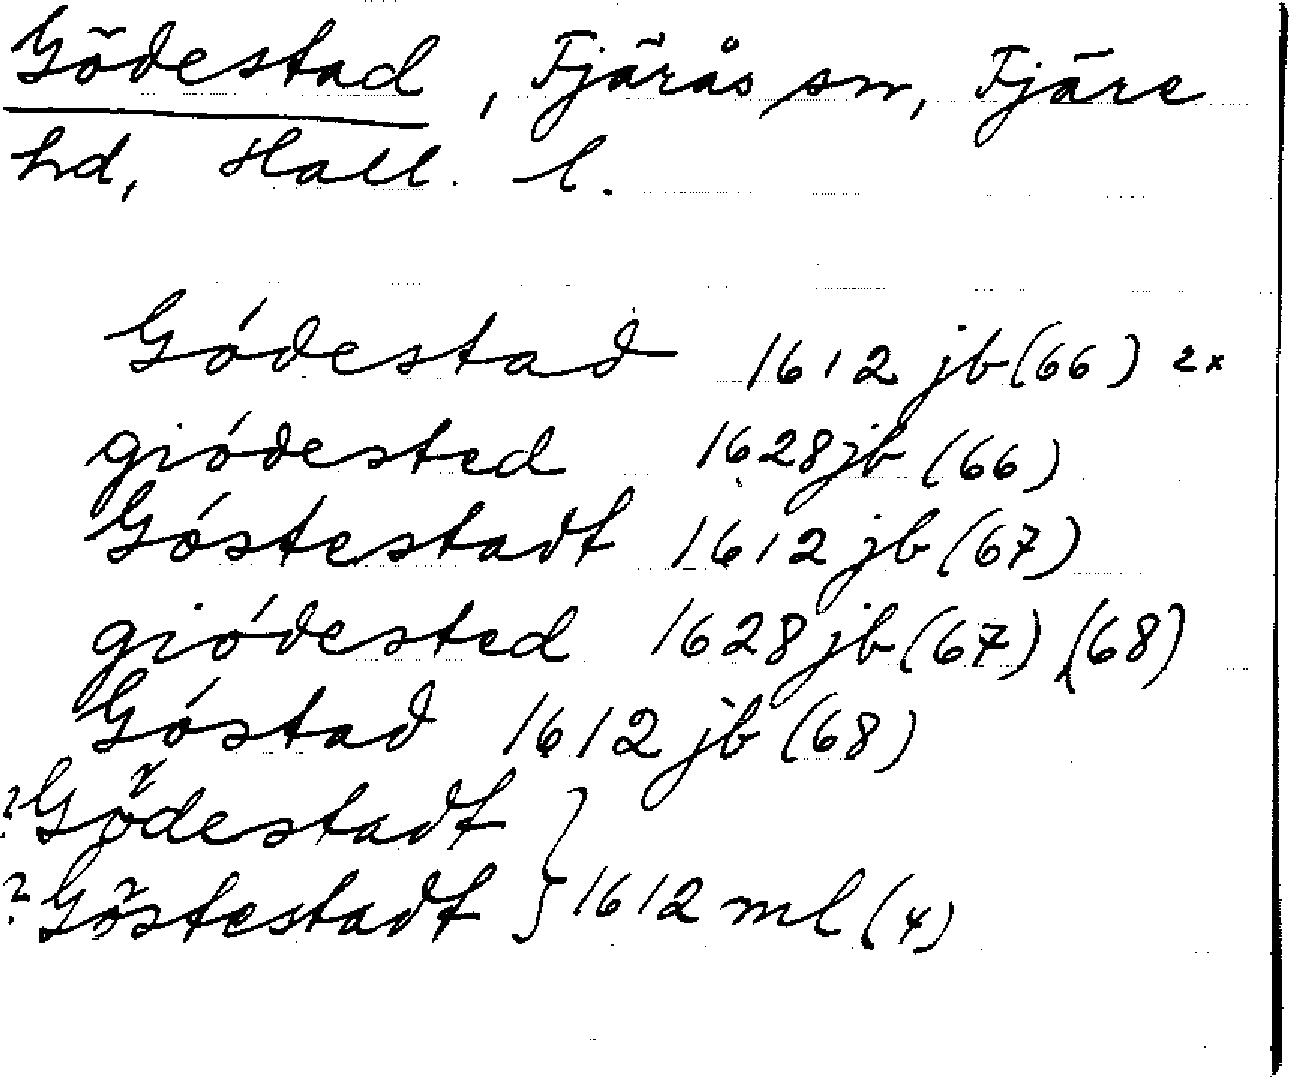 Gödestad, Fjärås sn, Fjäre
hd, Hall. l.
Gódestad 1612 jb (66) 2x
giódested 1628 jb (66)
Góstestadt 1612 jb (67)
giódested 1628 jb (67) (68)
Góstad 1612 jb (68)
? Gödestadt
? Göstestadt } 1612 ml (4)